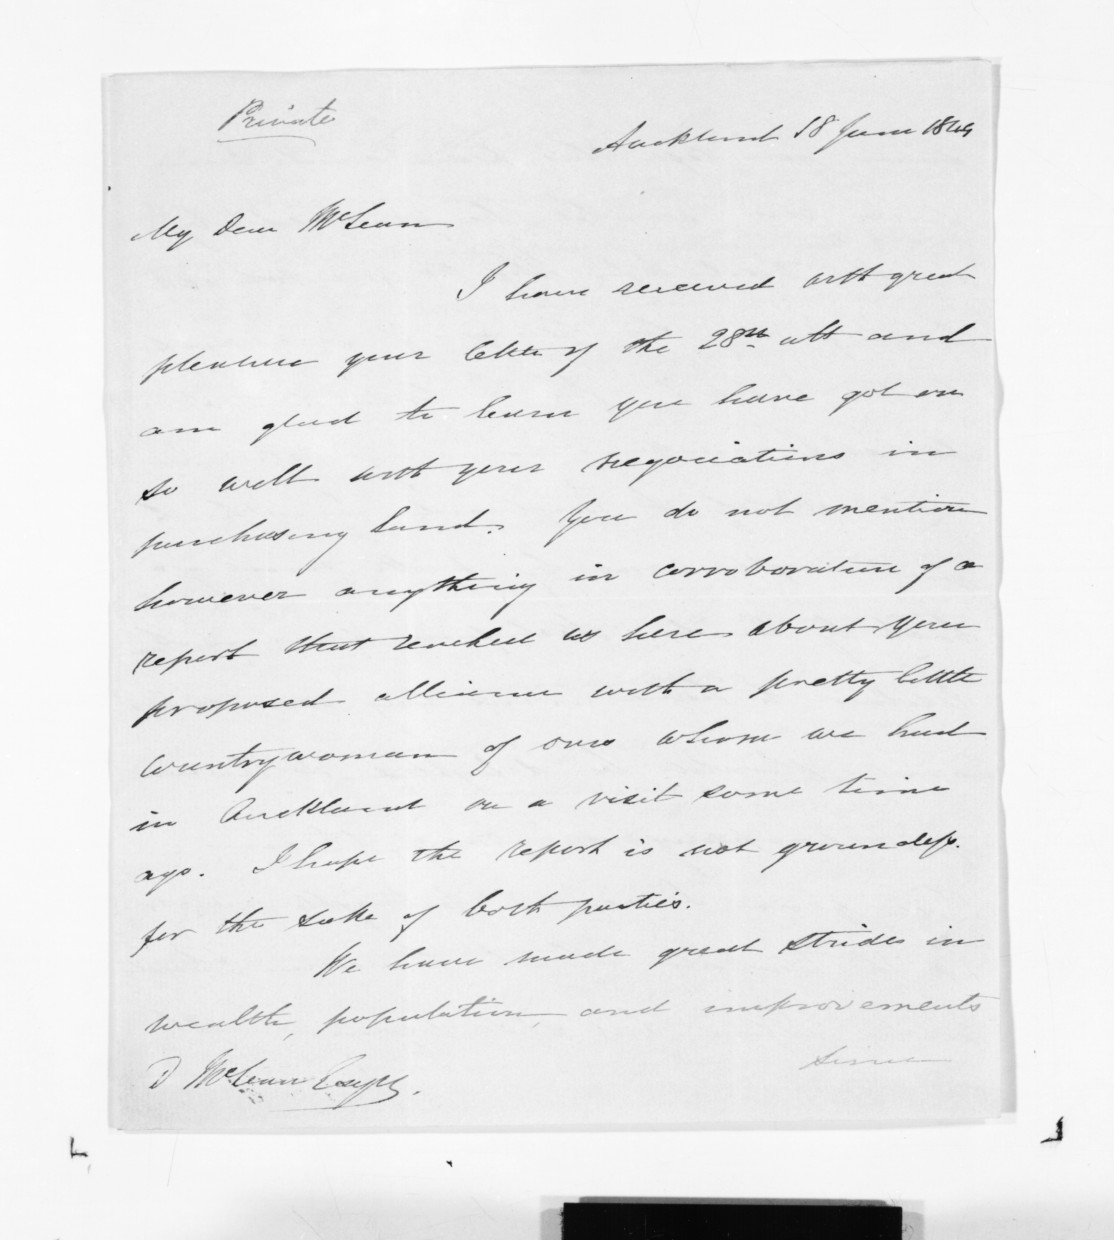 Private
Auckland 18 June 1849
My Dear McLean
I have received with great
pleasure your letter of the 28th ult and
am glad to learn you have got on
so well with your negociations in
purchasing land. You do not mention
however anything in corroboration of a
report that reached us here about your
proposed alliance with a pretty little
countrywoman of ours whom we had
in Auckland on a visit some time
ago. I hope the report is not groundless.
for the sake of both parties.
We have made great strides in
wealth, population, and improvements
since
D McLean Esqre.